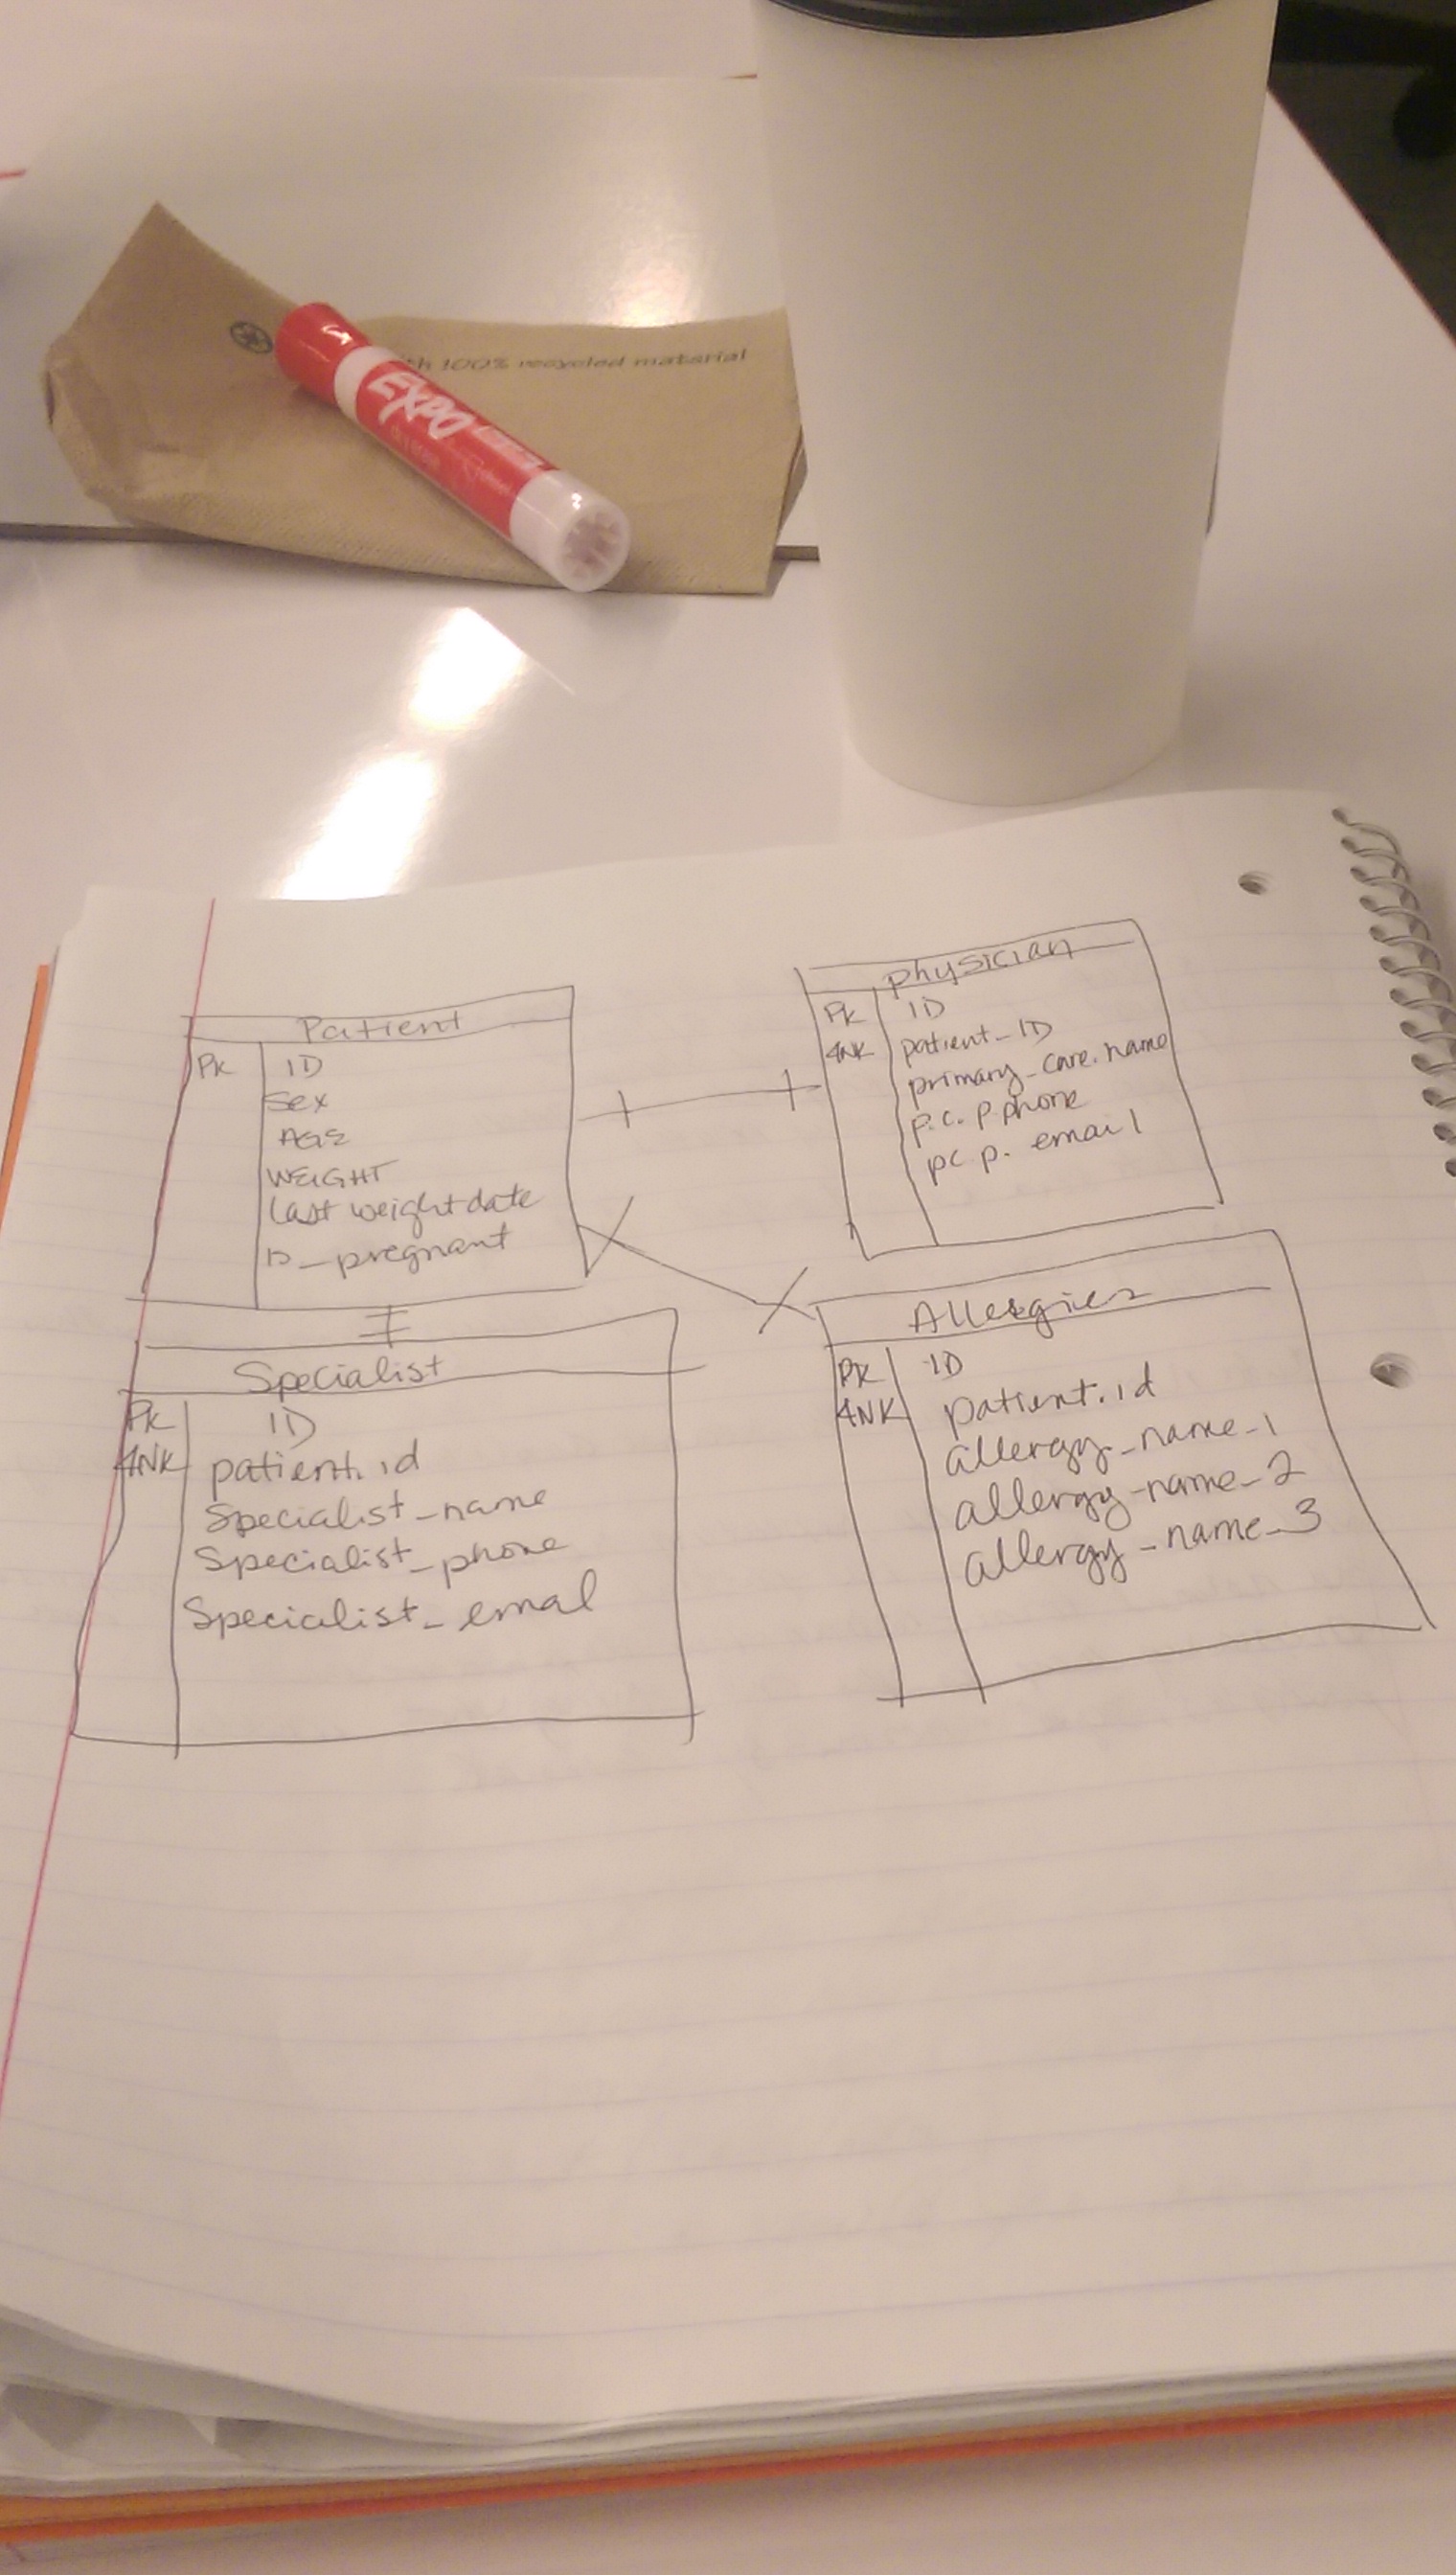 100% recycled material
EXPO
Patient
PK ID
Sex
AGE
WEIGHT
last weight date
is_pregnant
physician
PK ID
4NK patient_ID
primary_care.name
p.c.p phone
pc.p. email
Specialist
PK ID
4NK patient.id
Specialist_name
Specialist_phone
Specialist_email
Allergies
PK ID
4NK patient.id
allergy_name_1
allergy_name_2
allergy_name_3